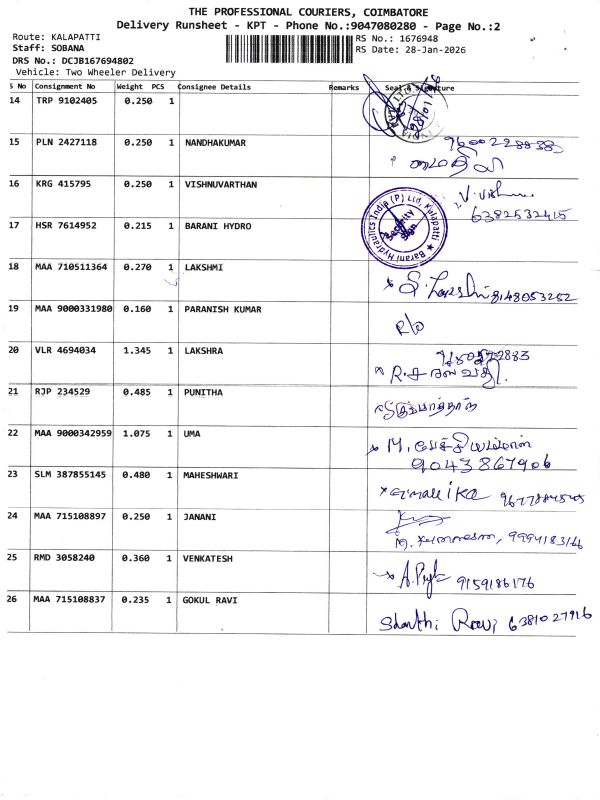 THE PROFESSIONAL COURIERS, COIMBATORE
Delivery Runsheet - KPT - Phone No.:9047080280 - Page No.:2
Route: KALAPATTI RS No.: 1676948
Staff: SOBANA RS Date: 28-Jan-2026
DRS No.: DCJB167694802
Vehicle: Two Wheeler Delivery
S No Consignment No Weight PCS Consignee Details Remarks Seal & Signature
14 TRP 9102405 0.250 1
15 PLN 2427118 0.250 1 NANDHAKUMAR
16 KRG 415795 0.250 1 VISHNUVARTHAN
6382532415
17 HSR 7614952 0.215 1 BARANI HYDRO
Barani Hydraulics India (P) Ltd, Kalapatti
Security
18 MAA 710511364 0.270 1 LAKSHMI
8148053252
19 MAA 9000331980 0.160 1 PARANISH KUMAR
R/o
20 VLR 4694034 1.345 1 LAKSHRA
21 RJP 234529 0.485 1 PUNITHA
22 MAA 9000342959 1.075 1 UMA
9043867906
23 SLM 387855145 0.480 1 MAHESHWARI
24 MAA 715108897 0.250 1 JANANI
25 RMD 3058240 0.360 1 VENKATESH
9159186176
26 MAA 715108837 0.235 1 GOKUL RAVI
Shanthi Ravi 6381027916